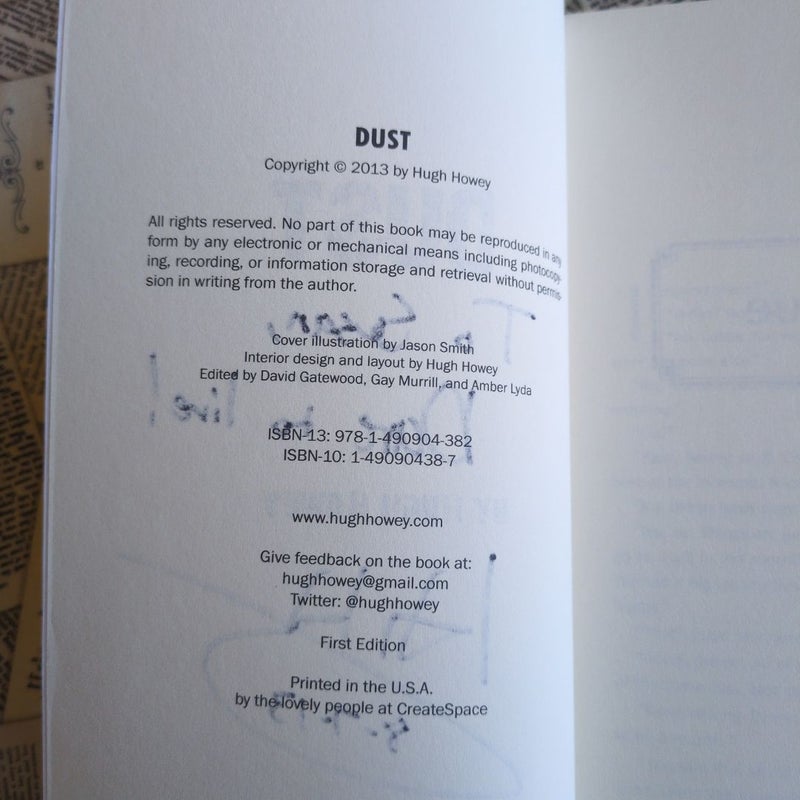 DUST
Copyright © 2013 by Hugh Howey
All rights reserved. No part of this book may be reproduced in any
form by any electronic or mechanical means including photocopy-
ing, recording, or information storage and retrieval without permis-
sion in writing from the author.
Cover illustration by Jason Smith
Interior design and layout by Hugh Howey
Edited by David Gatewood, Gay Murrill, and Amber Lyda
ISBN-13: 978-1-490904-382
ISBN-10: 1-49090438-7
www.hughhowey.com
Give feedback on the book at:
hughhowey@gmail.com
Twitter: @hughhowey
First Edition
Printed in the U.S.A.
by the lovely people at CreateSpace